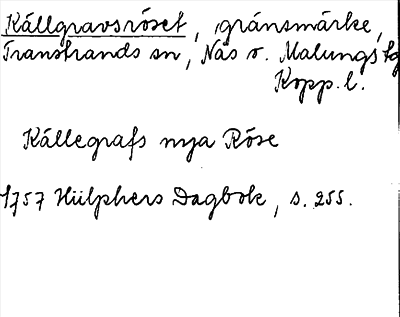 Källgravsröset, gränsmärke,
Transtrands sn, Nås o. Malungs tg
Kopp. l.
Källegrafs nya Röse
1757 Hülphers Dagbok, s. 255.